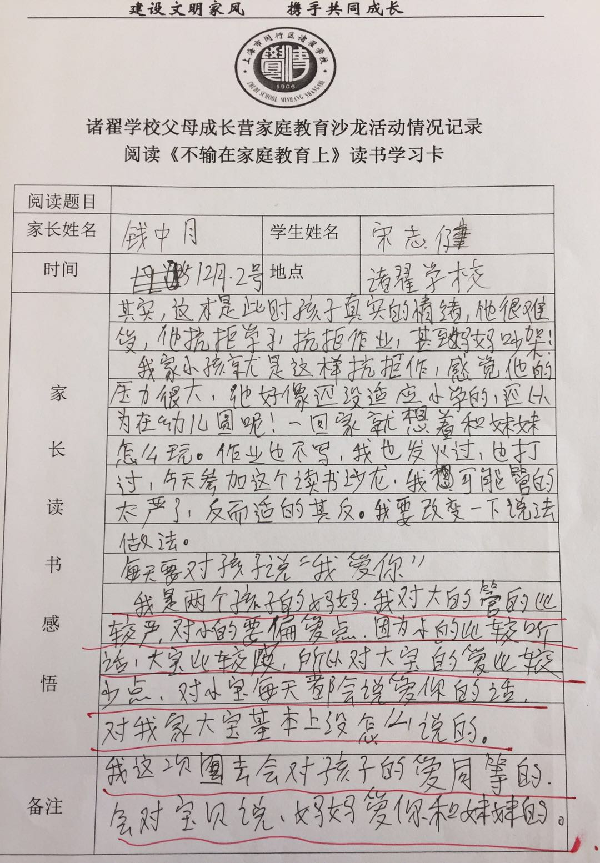 建设文明家风 携手共同成长
上海市闵行区诸翟学校
1906
诸翟学校父母成长营家庭教育沙龙活动情况记录
阅读《不输在家庭教育上》读书学习卡
阅读题目
家长姓名 钱中月 学生姓名 宋志健
时间 12月.2号 地点 诸翟学校
家长读书感悟
其实,这才是此时孩子真实的情绪,他很难
受,他抗拒学习,抗拒作业,甚至妈妈吵架!
我家小孩就是这样抗拒作,感觉他的
压力很大,他好像还没适应小学的,还以
为在幼儿园呢!一回家就想着和妹妹
怎么玩。作业也不写,我也发火过,也打
过,今天参加这个读书沙龙.我想可能管的
太严了,反而适的其反。我要改变一下说法
做法。
每天要对孩子说“我爱你”
我是两个孩子的妈妈.我对大的管的比
较严,对小的要偏爱点.因为小的比较听
话,大宝比较皮,所以对大宝的爱比较
少点,对小宝每天都会说爱你的话,
对我家大宝基本上没怎么说的。
备注
我这次回去会对孩子的爱同等的.
会对宝贝说、妈妈爱你和妹妹的。